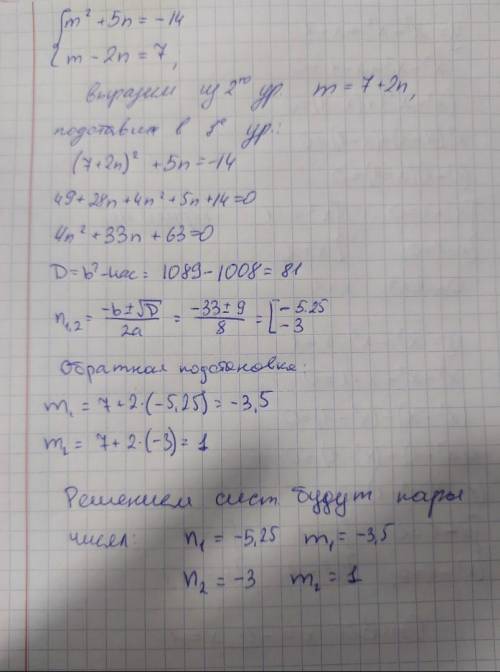 m² + 5n = -14
m - 2n = 7,
выразим из 2го ур. m = 7 + 2n,
подставим в 1е ур.:
(7+2n)² + 5n = -14
49 + 28n + 4n² + 5n + 14 = 0
4n² + 33n + 63 = 0
D = b² - 4ac = 1089 - 1008 = 81
n₁,₂ = (-b ± √D) / 2a = (-33 ± 9) / 8 = [ -5.25
-3
Обратная подстановка:
m₁ = 7 + 2·(-5,25) = -3,5
m₂ = 7 + 2·(-3) = 1
Решением сист будут пары
чисел: n₁ = -5,25 m₁ = -3,5
n₂ = -3 m₂ = 1